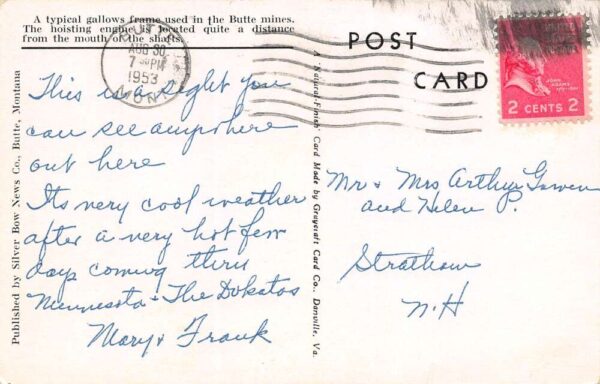 A typical gallows frame used in the Butte mines.
The hoisting engine is located quite a distance
from the mouth of the shafts.
BUTTE
AUG 30
7 30 PM
1953
MONT.
POST
CARD
JOHN
ADAMS
2 CENTS 2
This is a sight you
can see anywhere
out here
Its very cool weather
after a very hot few
days coming thru
Minnesota + The Dakotas
Mary + Frank
Mr + Mrs Arthur
and Helen P.
Stratham
N.H
Published by Silver Bow News Co., Butte, Montana
A "Natural-Finish" Card Made by Graycraft Card Co., Danville, Va.